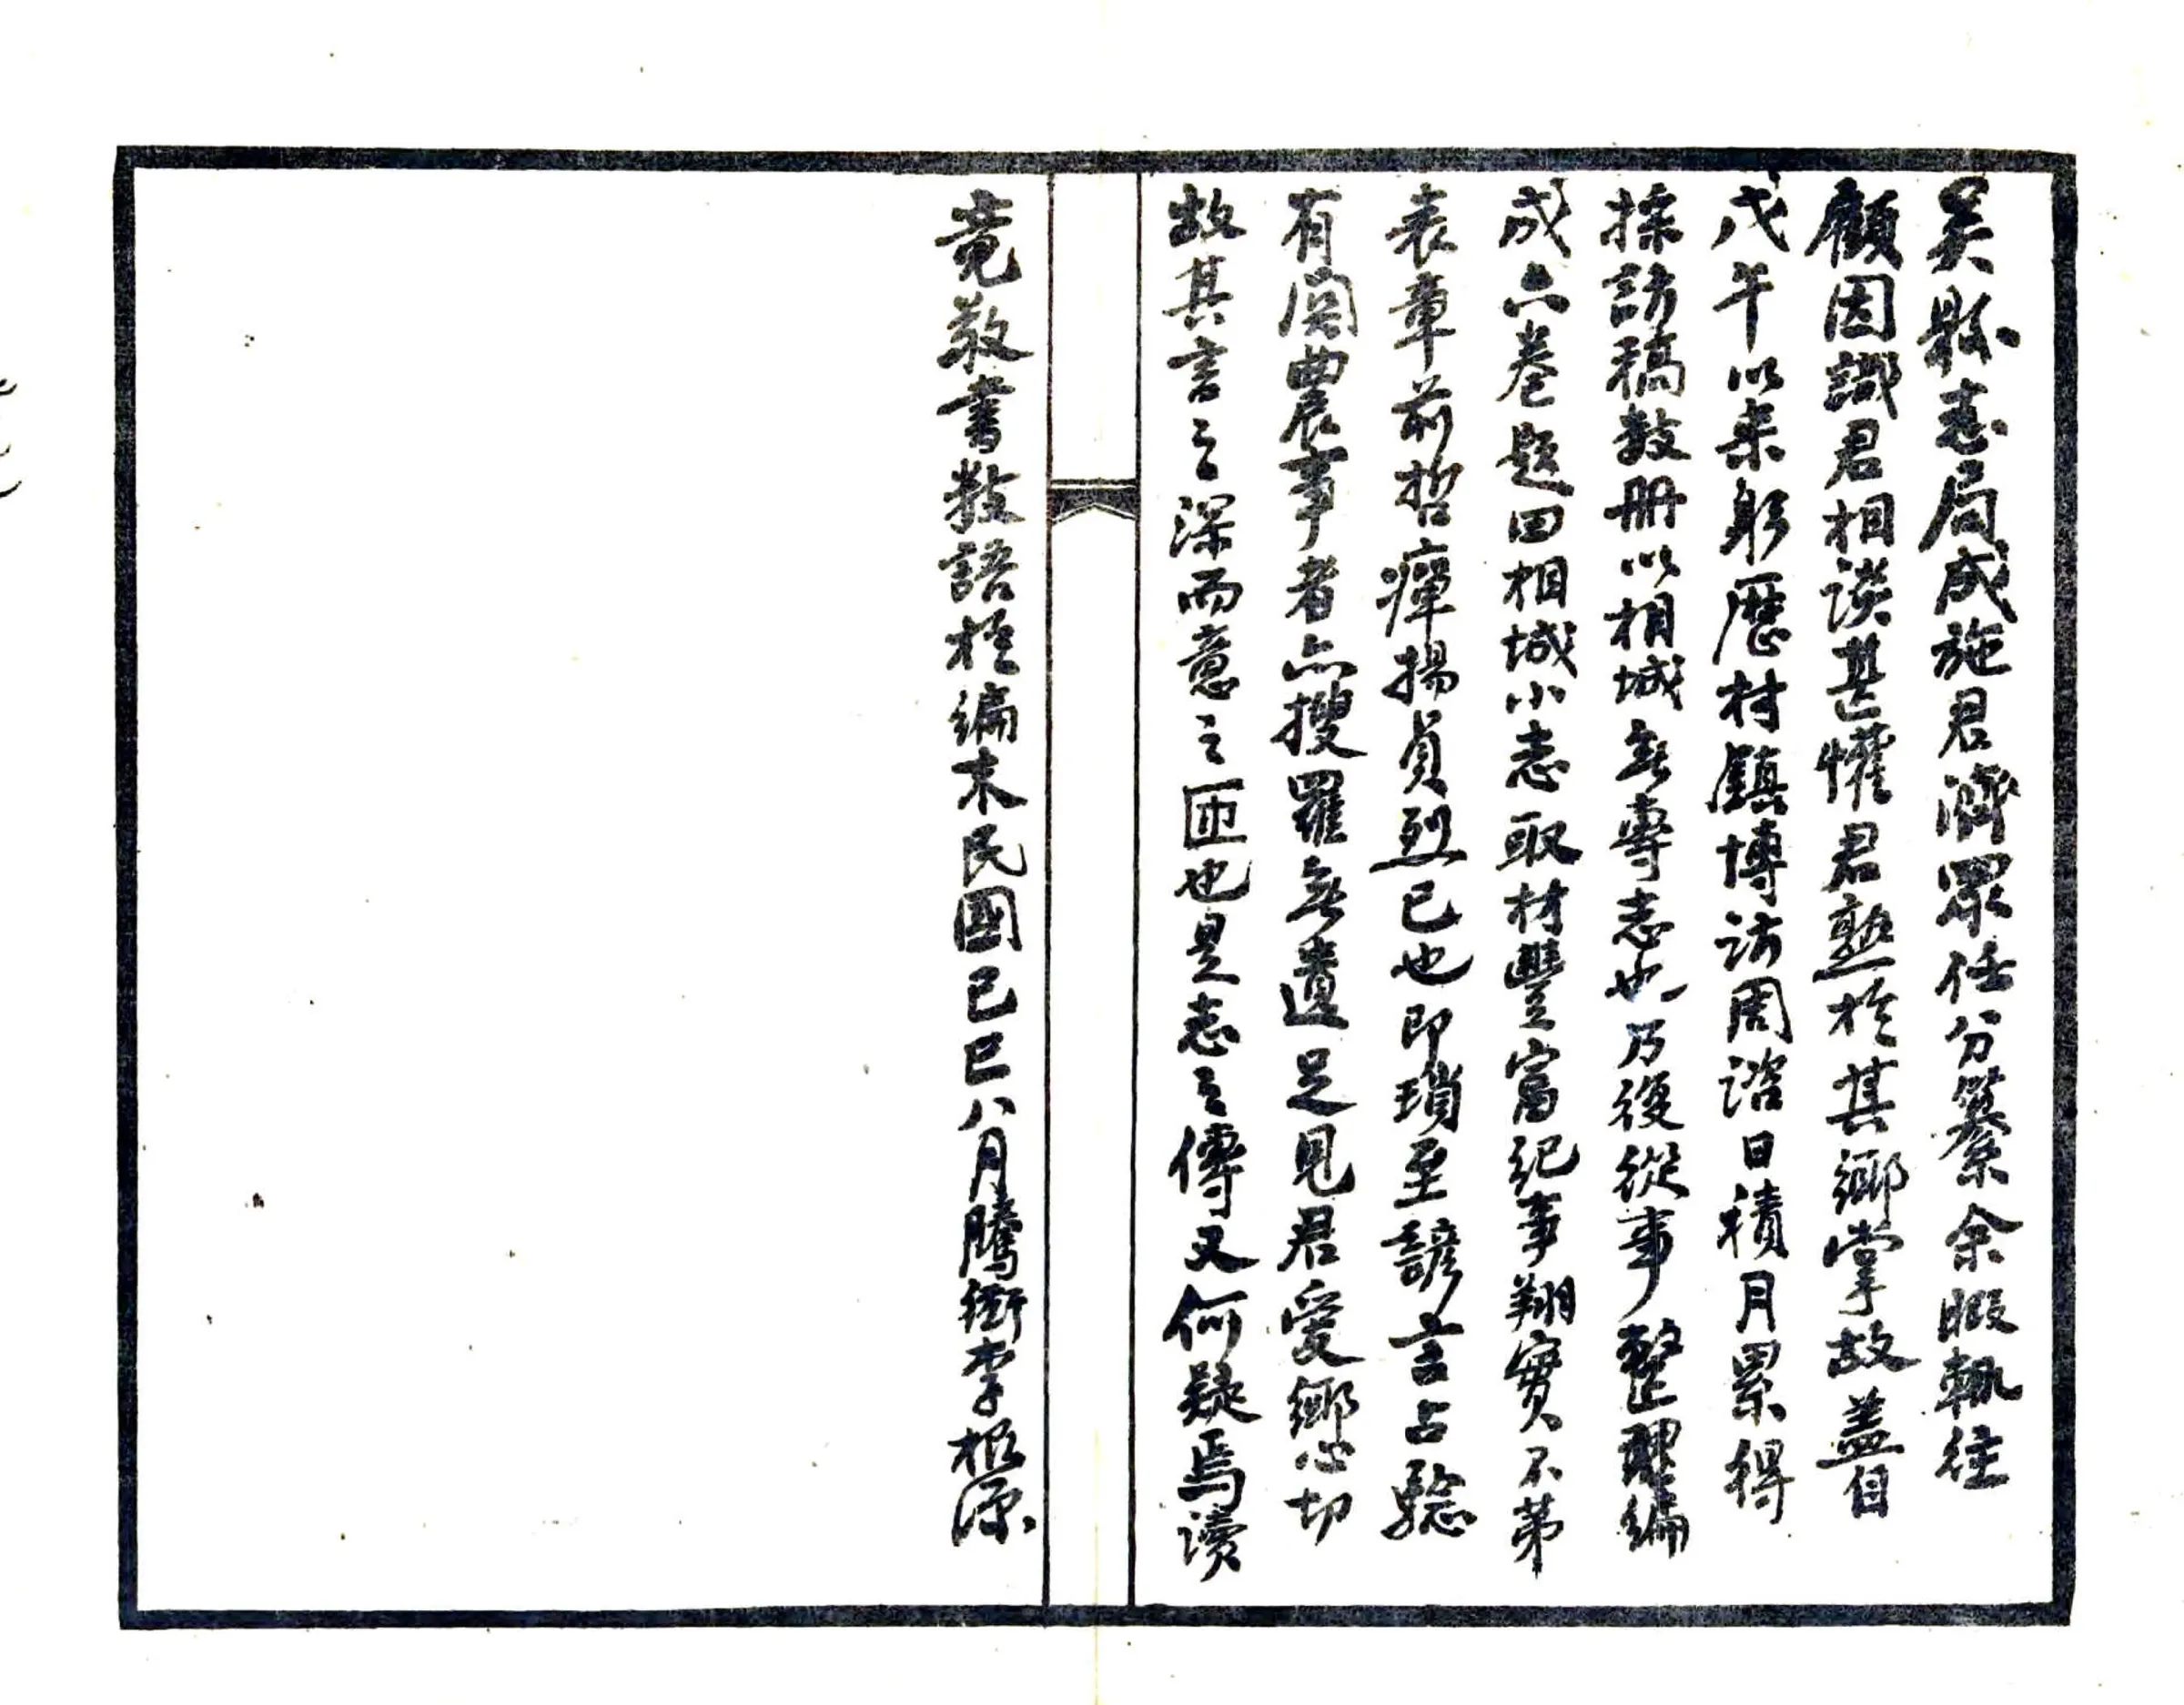 吳縣志局成施君濟眾任分纂余暇輒往
顧因識君相談甚懽君熟於其鄉掌故蓋自
戊午以来躬歷村鎮博訪周諮日積月累得
採訪稿数册以相城無專志也乃復從事整理編
成六卷題曰相城小志取材豐富紀事翔實不第
表章前哲癉揚貞烈已也即瑣至諺言占驗
有関農事者亦搜羅無遺足見君愛鄉心切
故其言之深而意之匝也是志之傳又何疑焉讀
竟敬書数語於編末民國己巳八月騰衝李根源